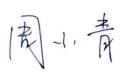 周小青